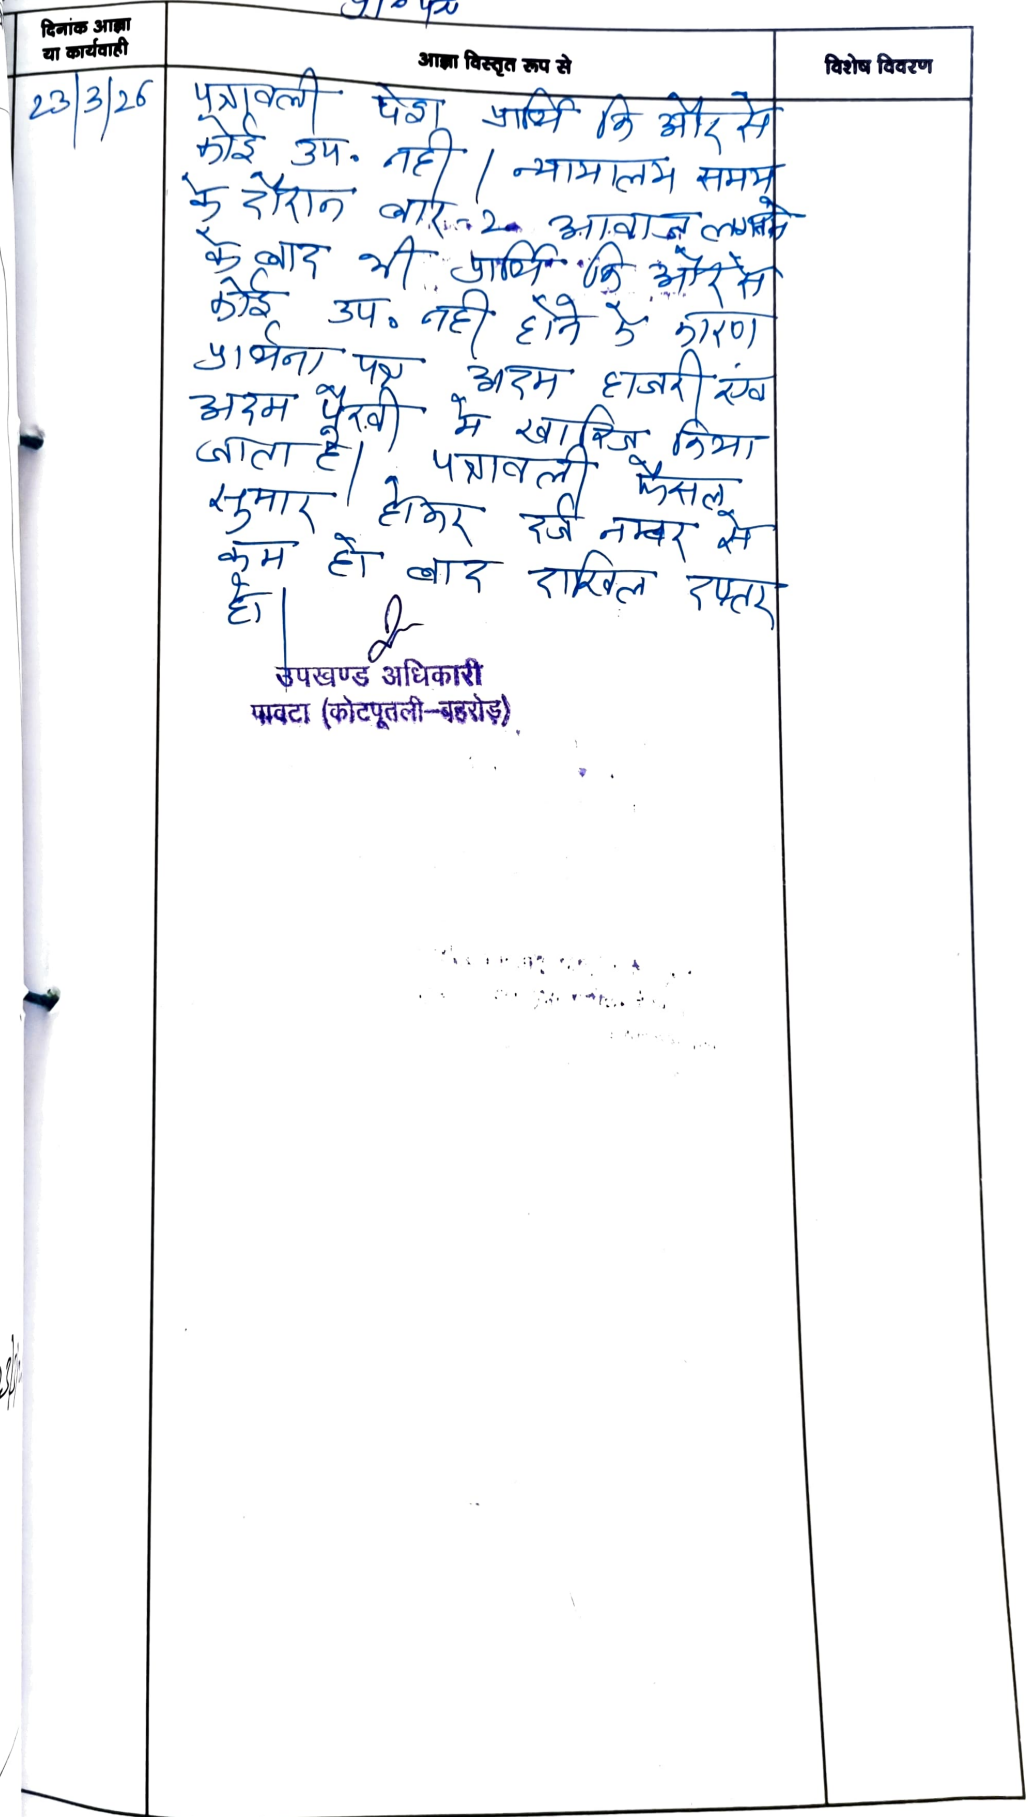 दिनांक आज्ञा
या कार्यवाही
आज्ञा विस्तृत रूप से
विशेष विवरण
23/3/26
पत्रावली पेश प्रार्थि कि और से
कोई उप. नही । न्यायालय समय
के दौरान बार-2 आवाज लगाने
के बाद भी प्रार्थि कि और से
कोई उप. नही होने के कारण
प्रार्थना पत्र अदम हाजरी एंव
अदम पैरवी मे खारिज किया
जाता है। पत्रावली फैसल
सुमार होकर दर्ज नम्बर से
कम हो बाद दाखिल दफ्तर
हो।
उपखण्ड अधिकारी
पावटा (कोटपूतली-बहरोड़)